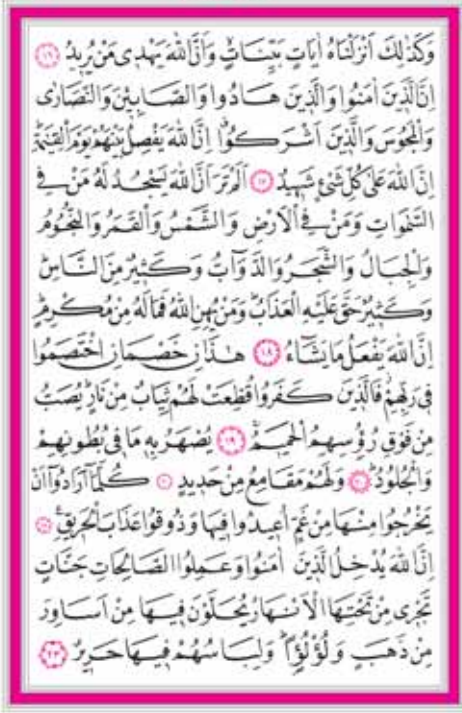 وَكَذٰلِكَ اَنْزَلْنَاهُ اٰيَاتٍ بَيِّنَاتٍۙ وَاَنَّ اللّٰهَ يَهْد۪ي مَنْ يُر۪يدُ ﴿١٦﴾
اِنَّ الَّذ۪ينَ اٰمَنُوا وَالَّذ۪ينَ هَادُوا وَالصَّابِـ۪ٔينَ وَالنَّصَارٰى
وَالْمَجُوسَ وَالَّذ۪ينَ اَشْرَكُواۗ اِنَّ اللّٰهَ يَفْصِلُ بَيْنَهُمْ يَوْمَ الْقِيٰمَةِۜ
اِنَّ اللّٰهَ عَلٰى كُلِّ شَيْءٍ شَه۪يدٌ ﴿١٧﴾ اَلَمْ تَرَ اَنَّ اللّٰهَ يَسْجُدُ لَهُ مَنْ فِي
السَّمٰوَاتِ وَمَنْ فِي الْاَرْضِ وَالشَّمْسُ وَالْقَمَرُ وَالنُّجُومُ
وَالْجِبَالُ وَالشَّجَرُ وَالدَّوَٓابُّ وَكَث۪يرٌ مِنَ النَّاسِۜ
وَكَث۪يرٌ حَقَّ عَلَيْهِ الْعَذَابُۜ وَمَنْ يُهِنِ اللّٰهُ فَمَا لَهُ مِنْ مُكْرِمٍۜ
اِنَّ اللّٰهَ يَفْعَلُ مَا يَشَٓاءُ ﴿١٨﴾ هٰذَانِ خَصْمَانِ اخْتَصَمُوا
ف۪ي رَبِّهِمْۘ فَالَّذ۪ينَ كَفَرُوا قُطِّعَتْ لَهُمْ ثِيَابٌ مِنْ نَارٍۜ يُصَبُّ
مِنْ فَوْقِ رُؤُ۫سِهِمُ الْحَم۪يمُۚ ﴿١٩﴾ يُصْهَرُ بِه۪ مَا ف۪ي بُطُونِهِمْ
وَالْجُلُودُۜ ﴿٢٠﴾ وَلَهُمْ مَقَامِعُ مِنْ حَد۪يدٍ ﴿٢١﴾ كُلَّمَٓا اَرَادُٓوا اَنْ
يَخْرُجُوا مِنْهَا مِنْ غَمٍّ اُع۪يدُوا ف۪يهَا وَذُوقُوا عَذَابَ الْحَر۪يقِ۟ ﴿٢٢﴾
اِنَّ اللّٰهَ يُدْخِلُ الَّذ۪ينَ اٰمَنُوا وَعَمِلُوا الصَّالِحَاتِ جَنَّاتٍ
تَجْر۪ي مِنْ تَحْتِهَا الْاَنْهَارُ يُحَلَّوْنَ ف۪يهَا مِنْ اَسَاوِرَ
مِنْ ذَهَبٍ وَلُؤْلُؤً۬اۜ وَلِبَاسُهُمْ ف۪يهَا حَر۪يرٌ ﴿٢٣﴾